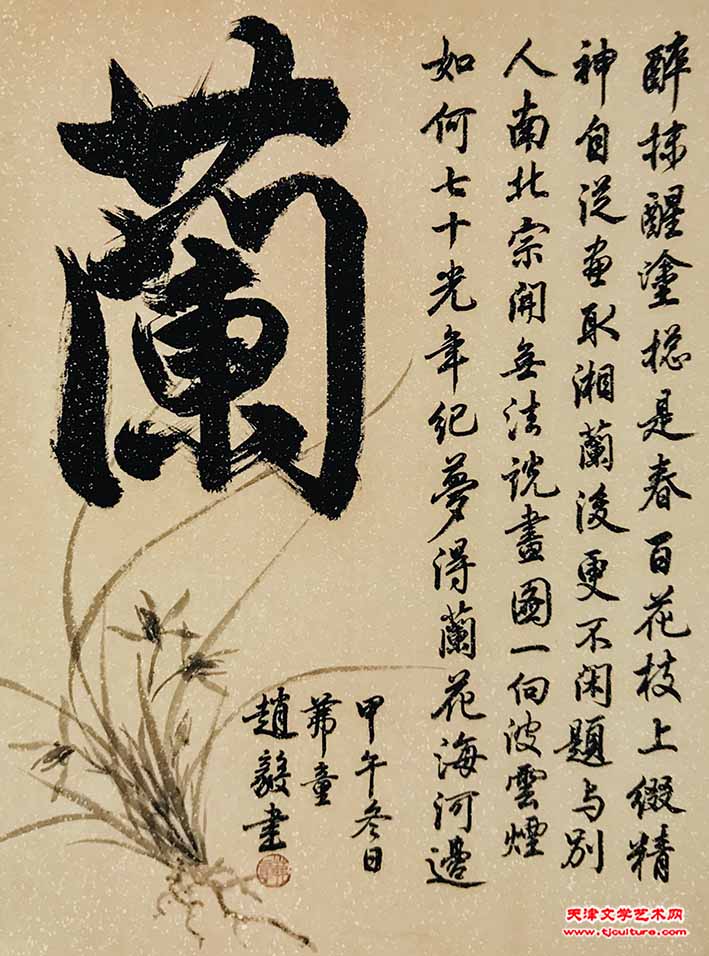 蘭
醉抹醒塗揔是春百花枝上綴精
神自從畫取湘蘭後更不閑題与別
人南北宗開無法說畫圖一向波雲煙
如何七十光年紀夢得蘭花海河邊
甲午冬日
茀童
趙毅書
天津文学艺术网
www.tjculture.com